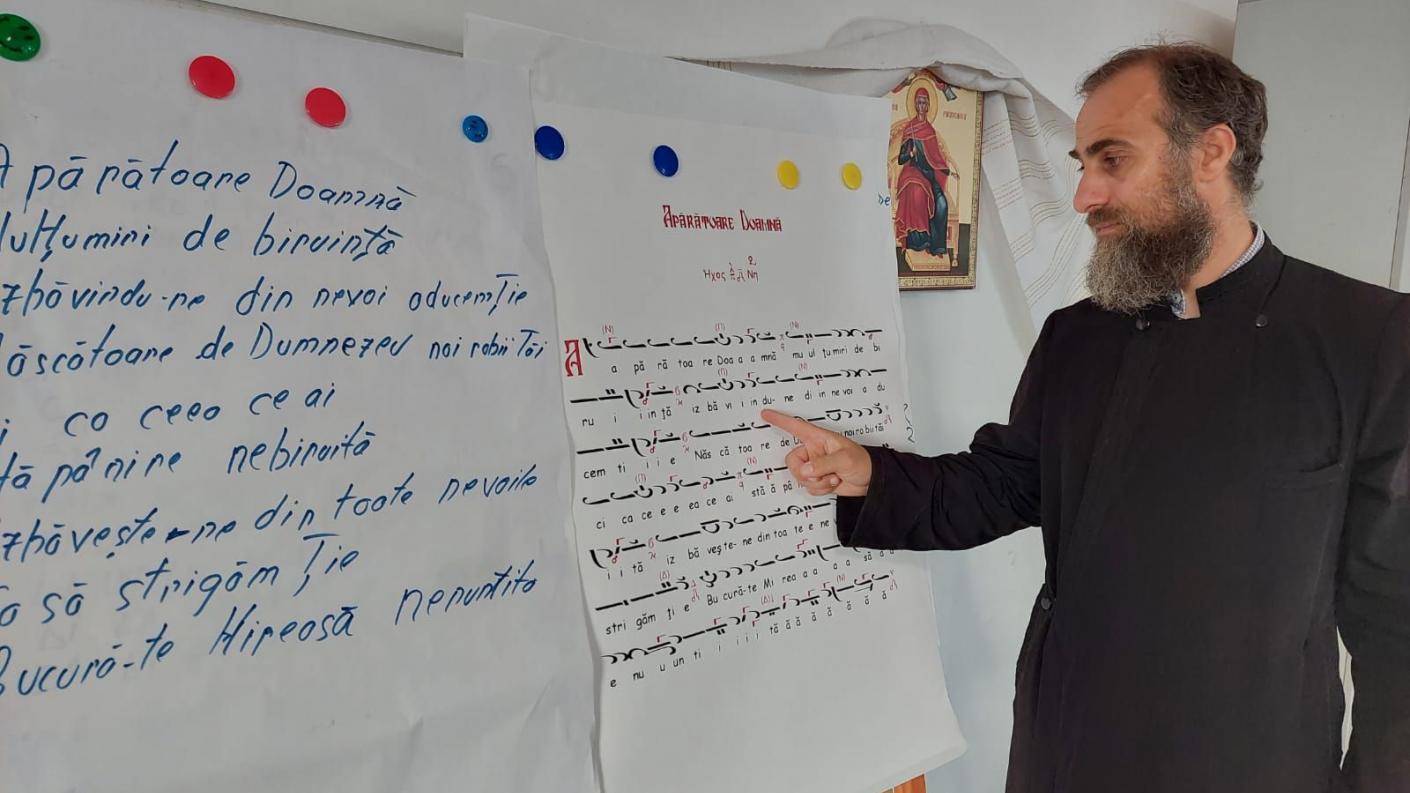 Apărătoare Doamnă
ulțumiri de biruință
zbăvindu-ne din nevoi aducemŢie
ăscătoare de Dumnezeu noi robii Tăi
i ca ceea ce ai
tăpânire nebiruită
zbăvește-ne din toate nevoile
a să strigăm Ţie
Bucură-te Mireasă nenuntita
de
APĂRĂTOARE DOAMNĂ
Ηχος Νη
A
a pă ră toa re Doa a a mnă mu ul țu miri de bi
ru i i in ță iz bă vi i in du- ne di in ne voi a du
cem ti i i e Năs că toa re de noi ro bii tăi
ci ca ce e e ea ce ai stă ă pâ
i i tă iz bă veș te- ne din toa te e ne
stri găm ți e Bu cură-te Mi rea a a a a să ă ă
e nu u un ti i i i i tă ă ă ă ă ă ă ă